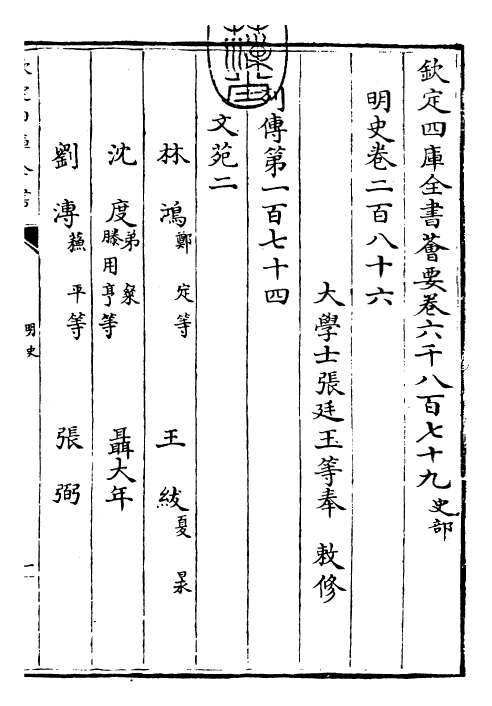 欽定四庫全書薈要卷六千八百七十九 史部
明史卷二百八十六
大學士張廷玉等奉 敕修
列傳第一百七十四
文苑二
林鴻 鄭定等 王紱 夏昺
沈度 弟粲 滕用亨等 聶大年
劉溥 蘇平等 張弼
明史
一